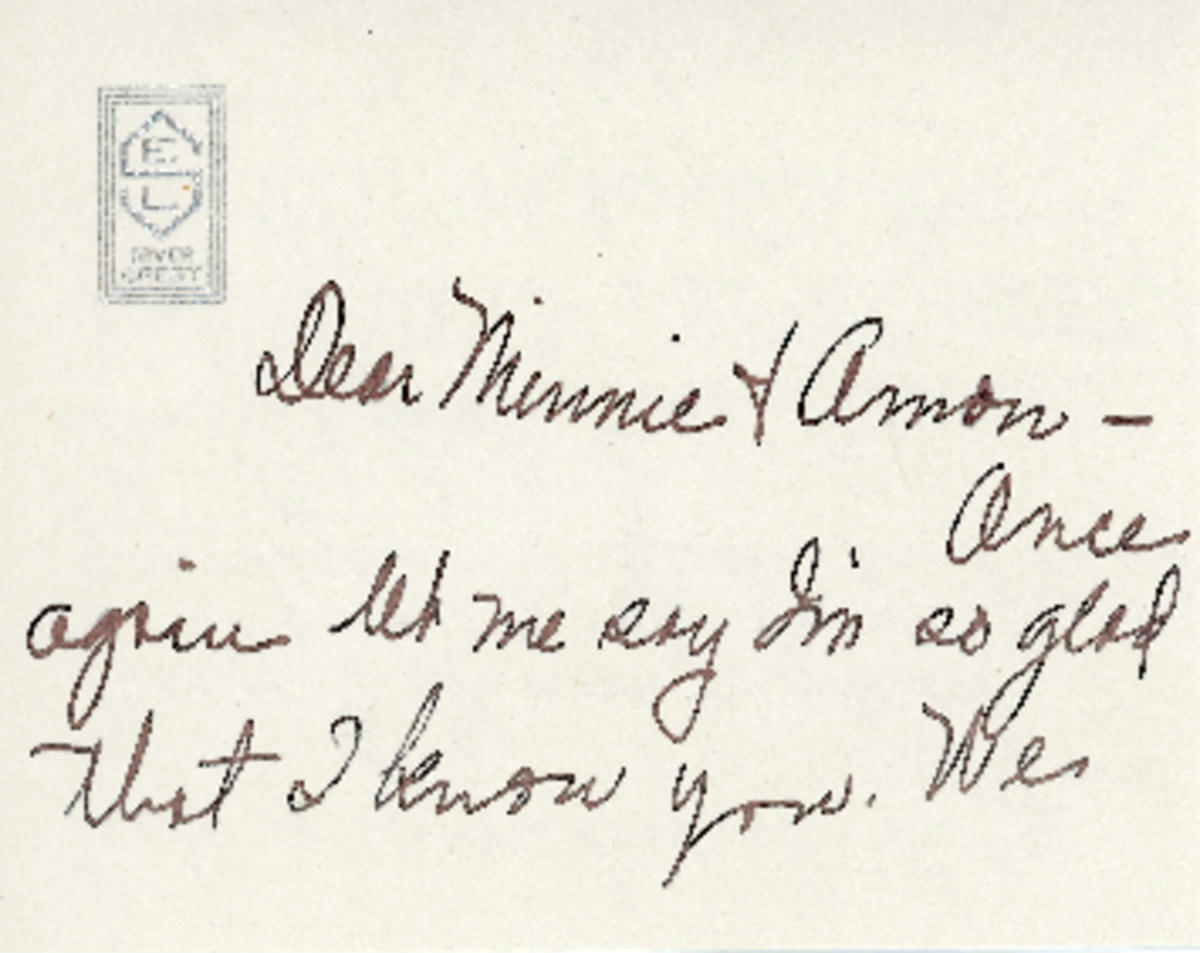 E
L
RIVER
CREST
Dear Minnie & Amon —
Once
again let me say I'm so glad
that I know you. We